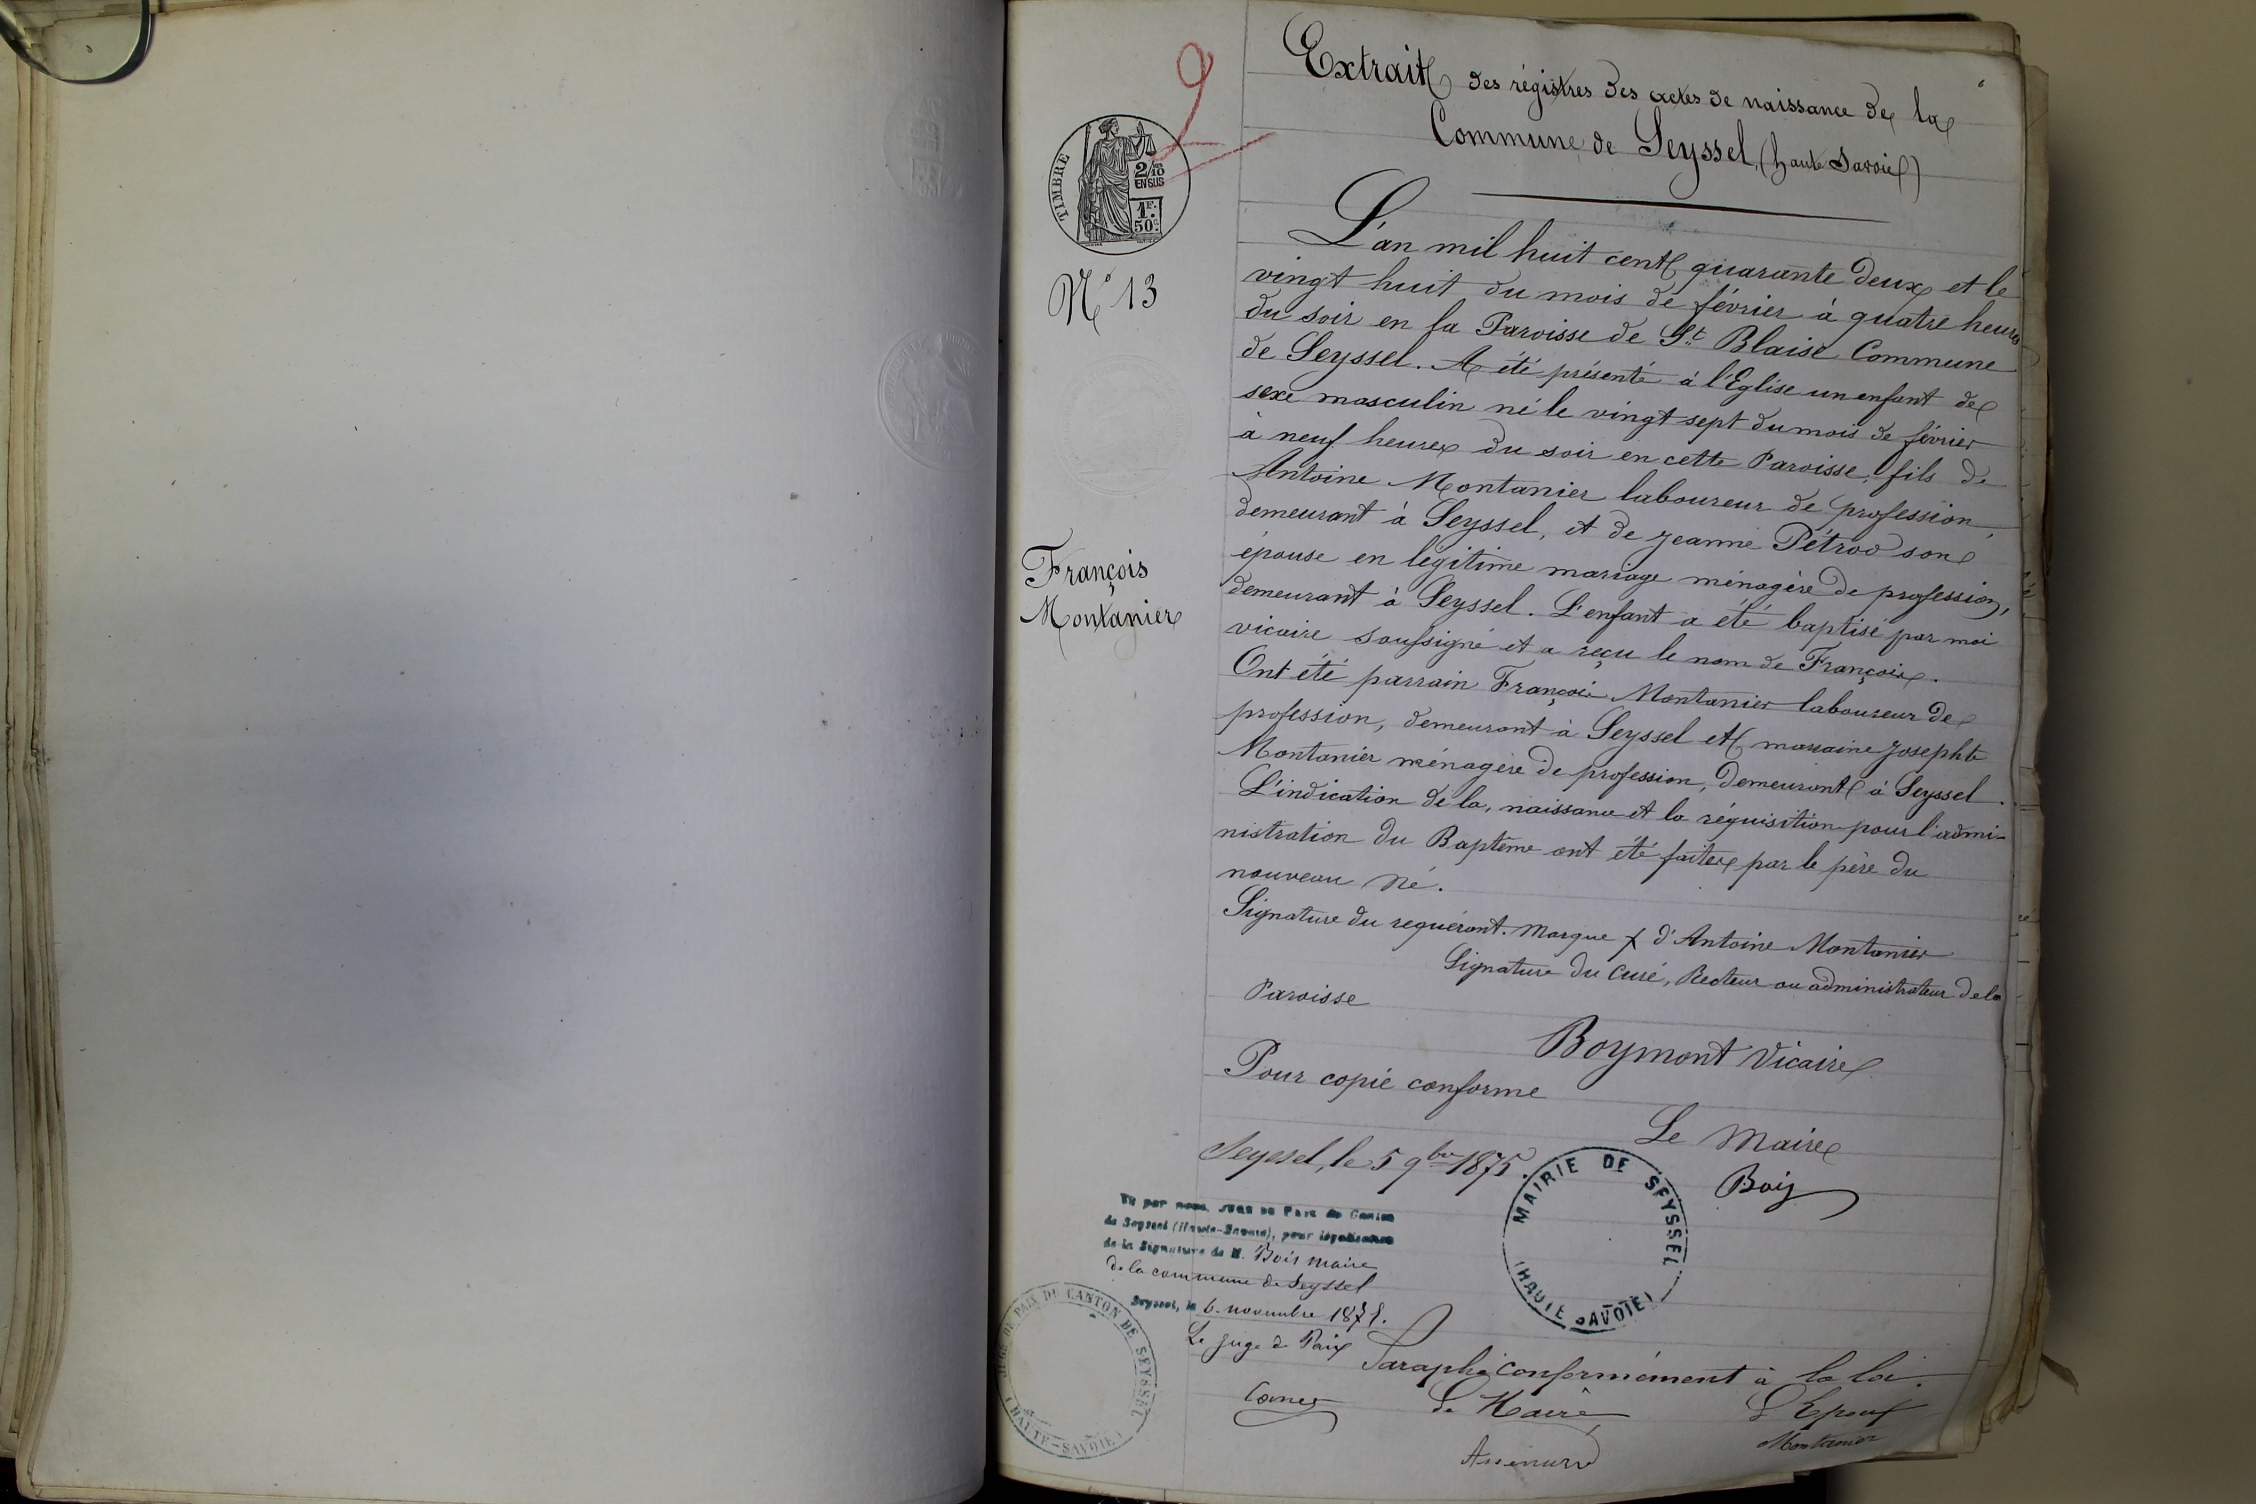 2
Extrait des régistres des actes de naissance de la
Commune de Seyssel, (haute Savoie)
TIMBRE
2/10
EN SUS
1F.
50c.
N° 13
L'an mil huit cent quarante deux et le
vingt huit du mois de février à quatre heures
du soir en la Paroisse de St Blaise Commune
de Seyssel. A été présenté à l'Eglise un enfant de
sexe masculin né le vingt sept du mois de février
à neuf heures du soir en cette Paroisse, fils de
Antoine Montanier laboureur de profession,
demeurant à Seyssel, et de Jeanne Pétrod son
épouse en légitime mariage ménagère de profession,
demeurant à Seyssel. L'enfant a été baptisé par moi
vicaire soussigné et a reçu le nom de François.
François
Montanier
Ont été parrain François Montanier laboureur de
profession, demeurant à Seyssel et marraine Josephte
Montanier ménagère de profession, demeurant à Seyssel.
L'indication de la, naissance et la réquisition pour l'admi-
nistration du Baptême ont été faites par le père du
nouveau né.
Signature du requérant. Marque x d'Antoine Montanier
Signature du Curé, Recteur ou administrateur de la
Paroisse
Boymont Vicaire
Pour copie conforme
Le Maire
Seyssel, le 5 9bre 1875.
Bois
MAIRIE DE SEYSSEL
(HAUTE SAVOIE)
Vu par nous, Juge de Paix du Canton
de Seyssel (Haute-Savoie), pour légalisation
de la Signature de M. Bois maire
de la commune de Seyssel
Seyssel, le 6 novembre 1875.
Le Juge de Paix
JUGE DE PAIX DU CANTON DE SEYSSEL
(HAUTE-SAVOIE)
Paraphé conformément à la loi.
Le Maire
L'Epoux
Montanier